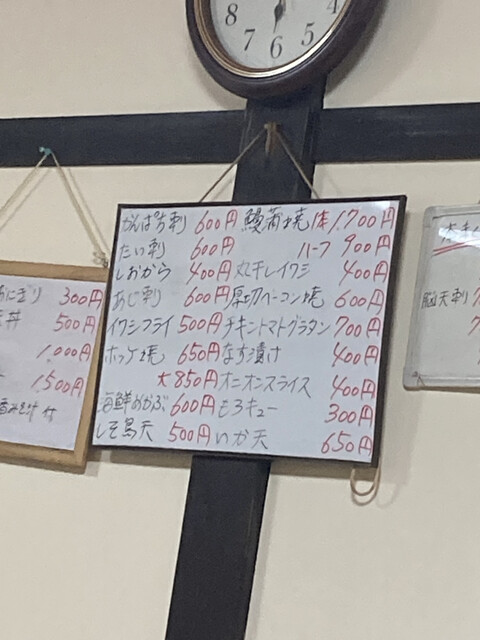 8
7
6
5
4
かんぱち刺 600円
たい刺 600円
しおから 400円
あじ刺 600円
イワシフライ 500円
ホッケ焼 650円
大 850円
海鮮めかぶ 600円
しそ鳥天 500円
鰻蒲焼 1本 1,700円
ハーフ 900円
丸干しイワシ 400円
厚切ベーコン焼 600円
チキントマトグラタン 700円
なす漬け 400円
オニオンスライス 400円
もろキュー 300円
いか天 650円
おにぎり 300円
丼 500円
1,000円
1,500円
付